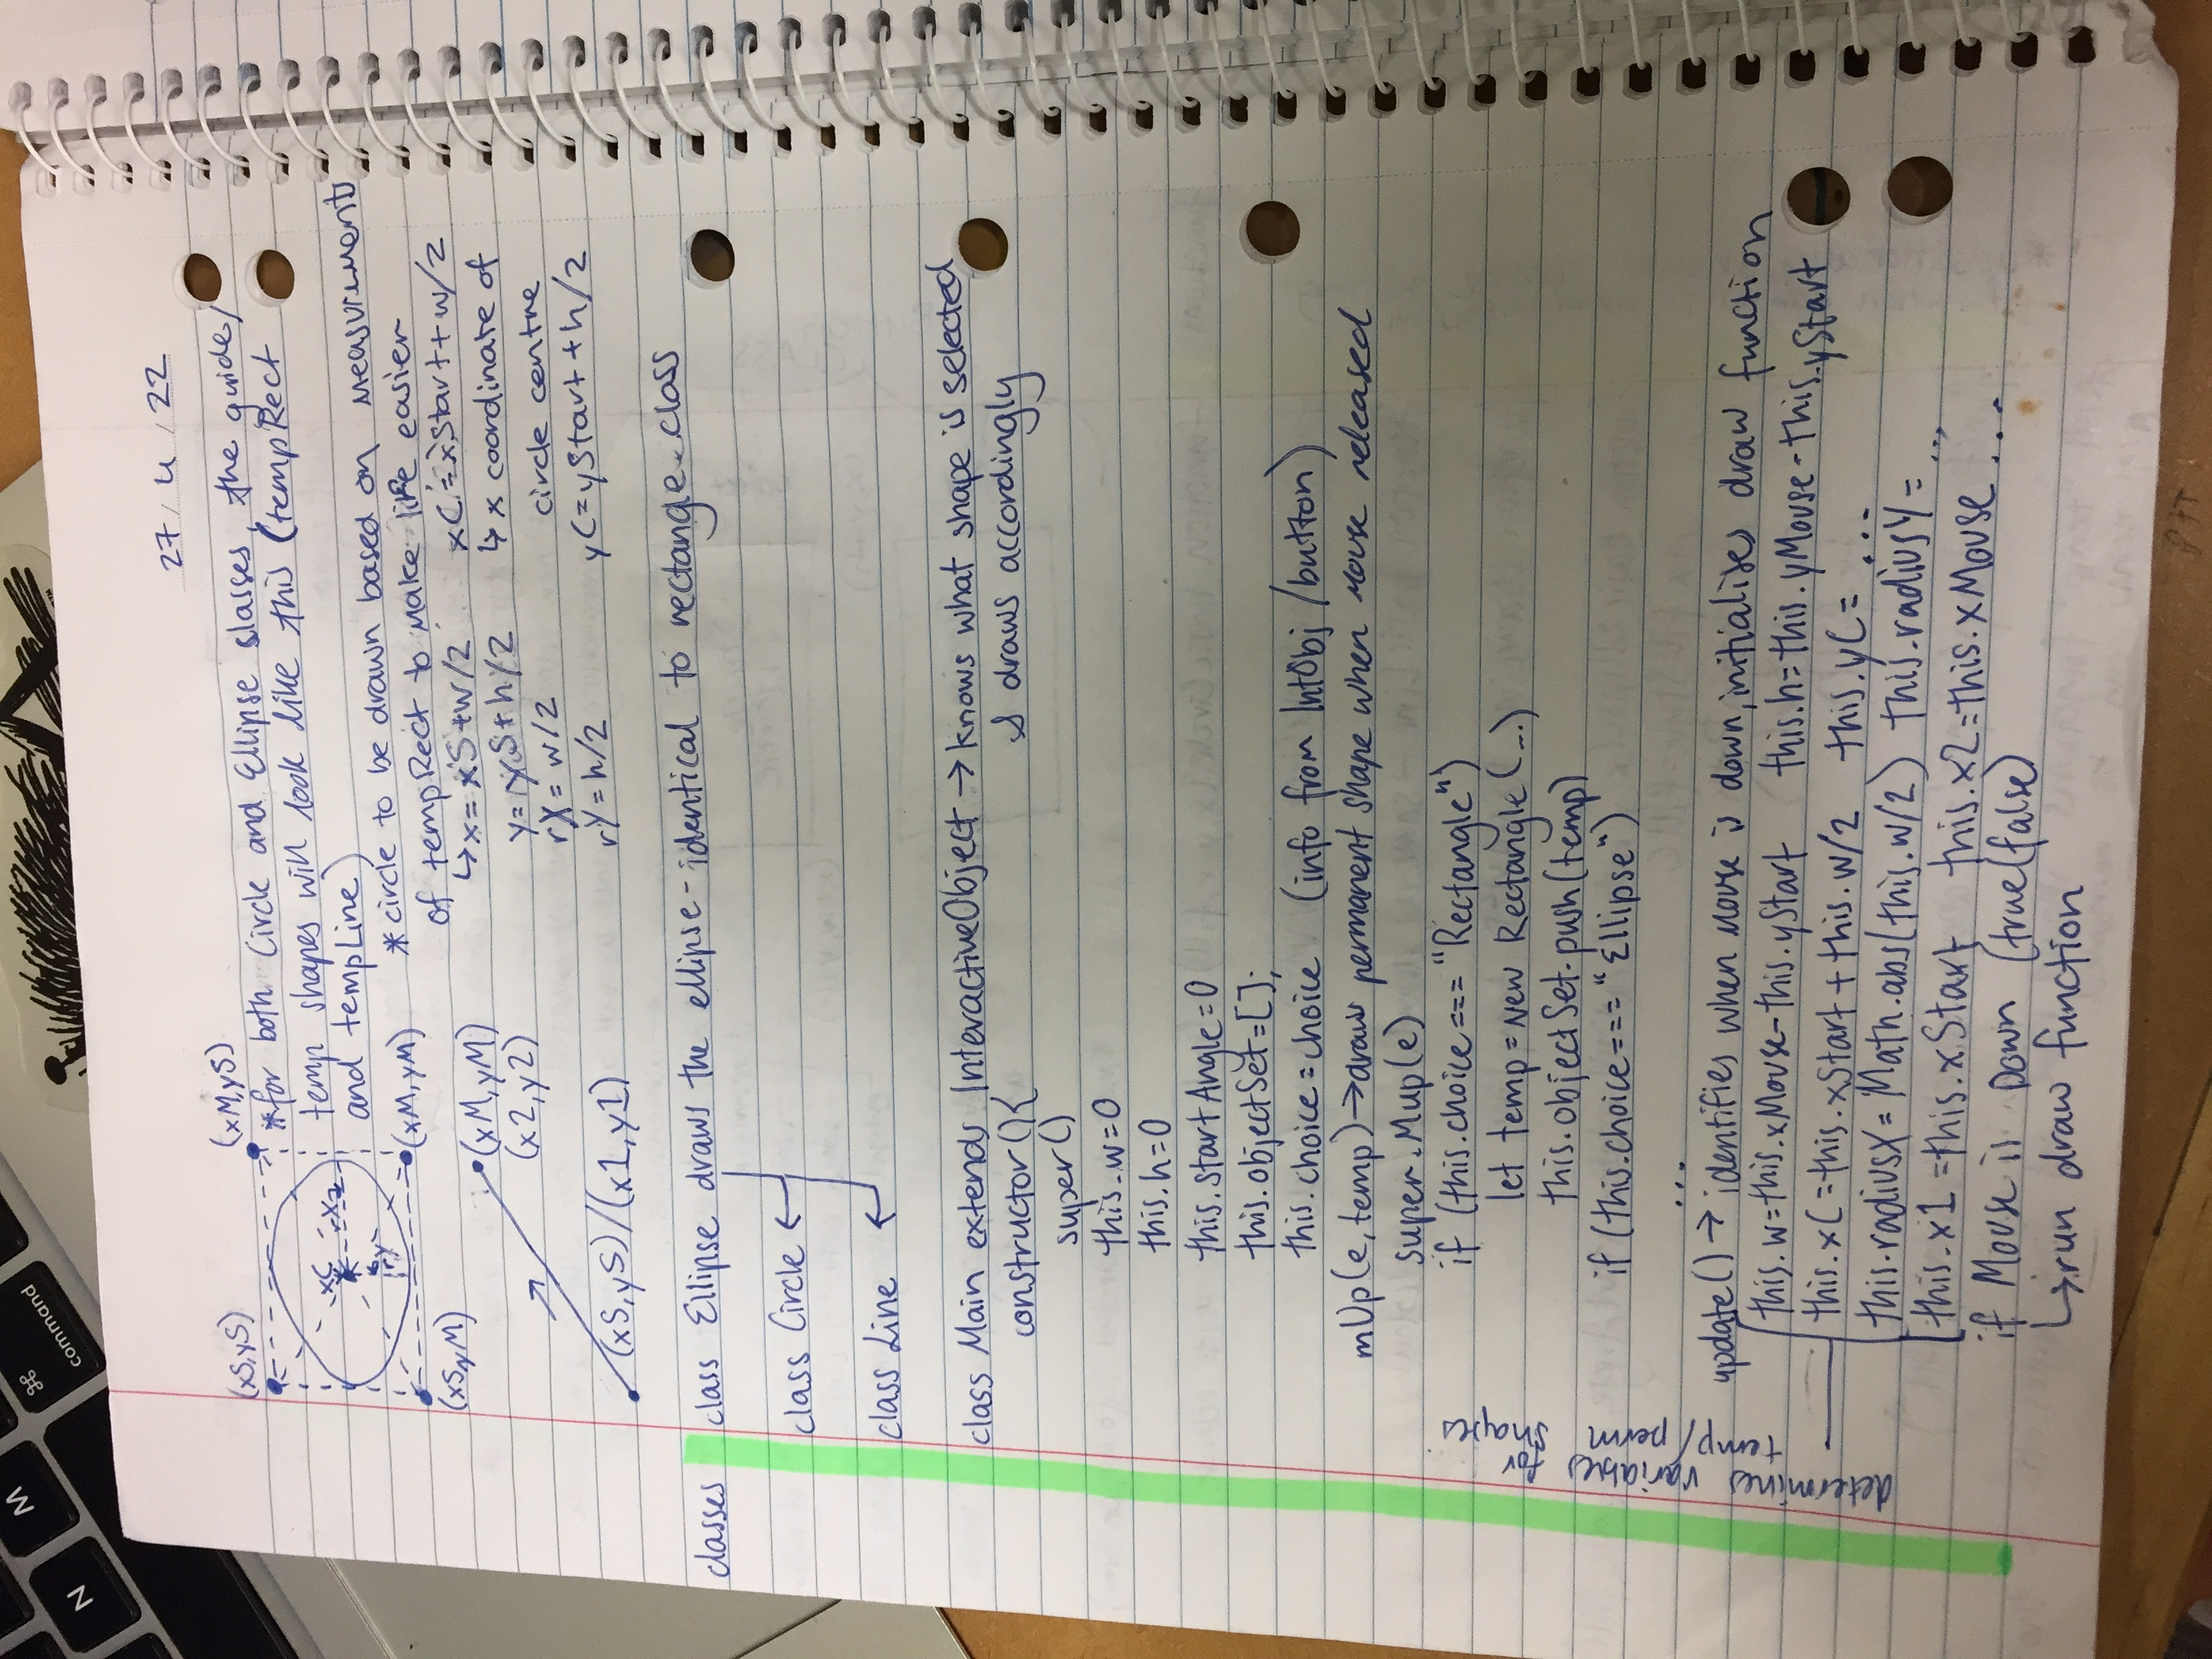 N
M
⌘
command
27 / 4 / 22
(xS,yS)
(xM,yS)
*for both Circle and Ellipse slasses, the guide/
temp shapes will look like this (tempRect
and tempLine)
xC
rX
rY
(xM,yM)
(xS,yM)
*circle to be drawn based on measurements
of tempRect to make life easier
↳x= xS+w/2
y= yS+h/2
rX= w/2
rY= h/2
xC = xStart + w/2
↳ x coordinate of
circle centre
yC=yStart +h/2
(xM,yM)
(x2,y2)
(xS,yS)/(x1,y1)
classes
class Ellipse draws the ellipse-identical to rectangle class
class Circle ←
class Line ←
class Main extends InteractiveObject → knows what shape is selected
& draws accordingly
constructor(){
super()
this.w=0
this.h=0
this.startAngle=0
this.objectSet=[];
this.choice=choice (info from IntObj /button)
mUp(e,temp)→draws permanent shape when mouse released
super.Mup(e)
if (this.choice === "Rectangle")
let temp = new Rectangle(...)
this.objectSet.push(temp)
if (this.choice === "Ellipse")
...
update() → identifies when mouse is down, initialises draw function
determines variables for
temp/perm shapes
this.w=this.xMouse-this.yStart this.h=this.yMouse-this.yStart
this.xC=this.xStart + this.w/2 this.yC= ...
this.radiusX= Math.abs(this.w/2) this.radiusY= ...
this.x1 =this.xStart this.x2=this.xMouse ...
if Mouse is Down (true(false)
↳run draw function